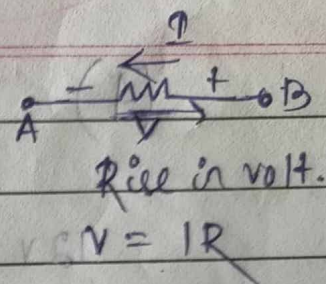 I
- +
A B
V
Rise in volt.
V = IR